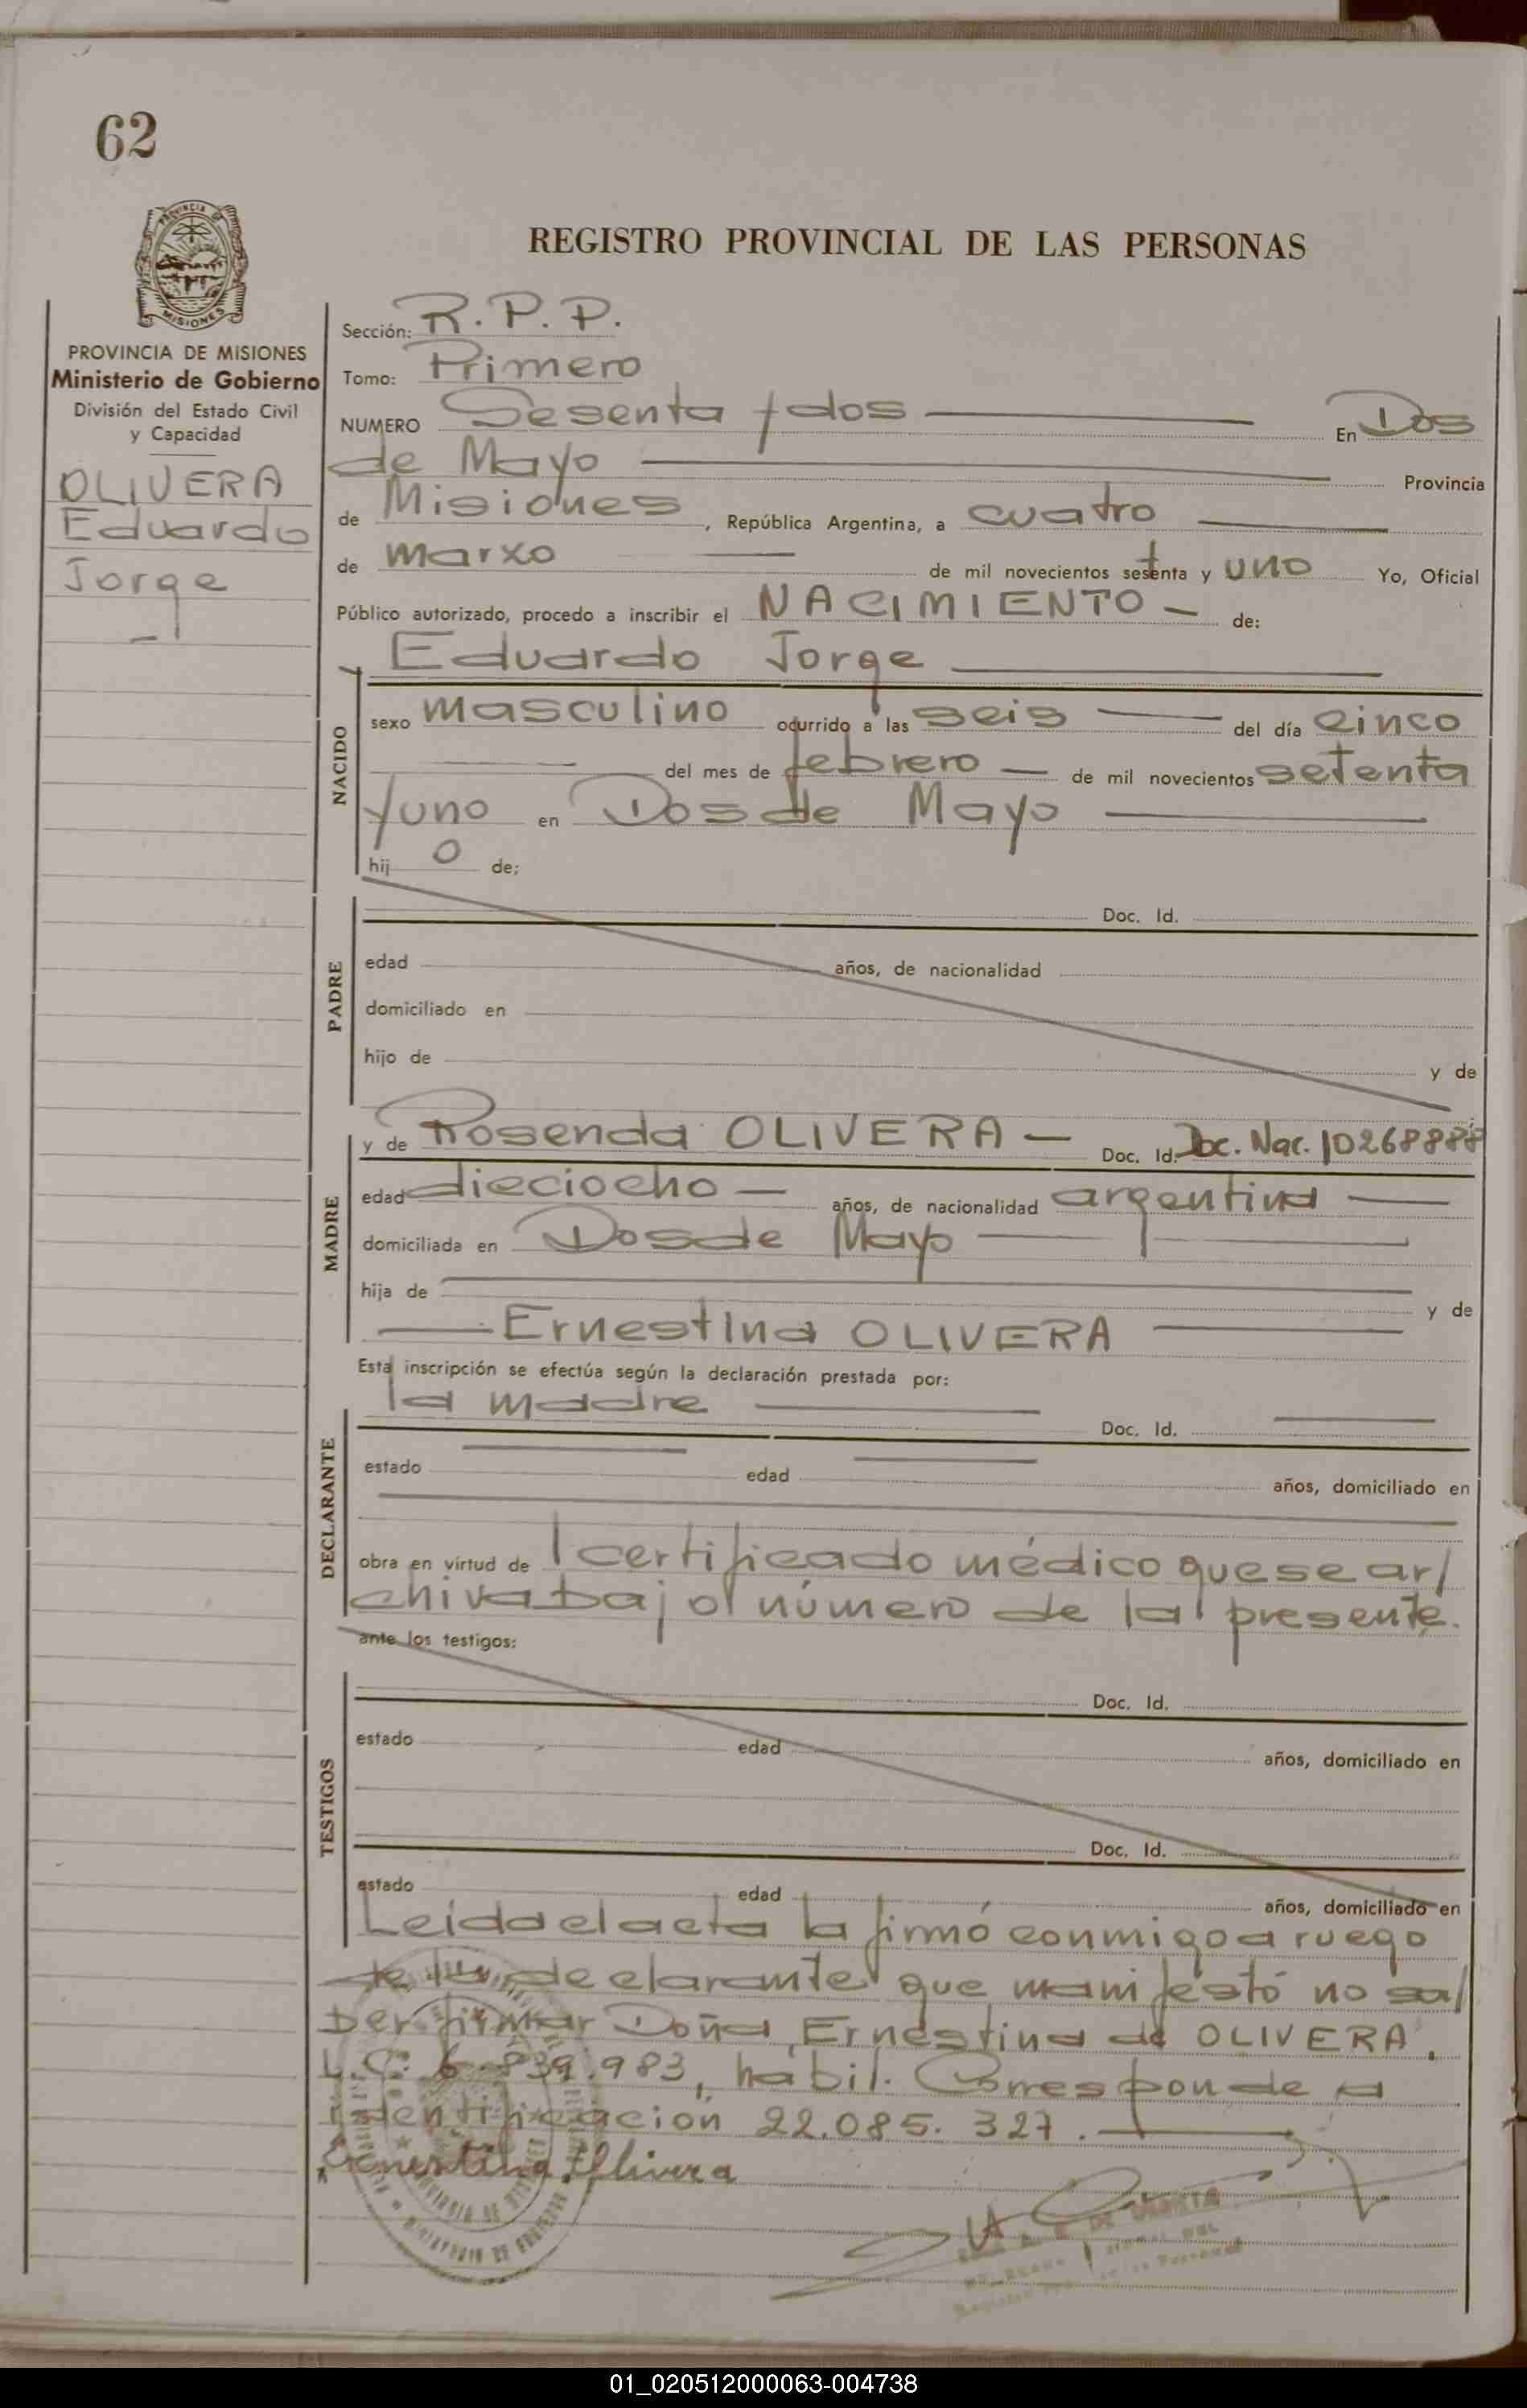 62
REGISTRO PROVINCIAL DE LAS PERSONAS
PROVINCIA DE MISIONES
Ministerio de Gobierno
División del Estado Civil
y Capacidad
OLIVERA
Eduardo
Jorge
Sección: R.P.P.
Tomo: Primero
NUMERO Sesenta y dos En Dos
de Mayo Provincia
de Misiones, República Argentina, a cuatro
de marzo de mil novecientos setenta y uno Yo, Oficial
Público autorizado, procedo a inscribir el NACIMIENTO de:
Eduardo Jorge
NACIDO
sexo masculino ocurrido a las seis del día cinco
del mes de febrero de mil novecientos setenta
y uno en Dos de Mayo
hijo de:
PADRE
Doc. Id.
edad años, de nacionalidad
domiciliado en
hijo de y de
MADRE
y de Rosenda OLIVERA Doc. Id. Doc. Nac. 10268888
edad dieciocho años, de nacionalidad argentina
domiciliada en Dos de Mayo
hija de y de
Ernestina OLIVERA
Esta inscripción se efectúa según la declaración prestada por:
DECLARANTE
la madre Doc. Id.
estado edad años, domiciliado en
obra en virtud de certificado médico que se ar/
chiva bajo número de la presente.
ante los testigos:
TESTIGOS
Doc. Id.
estado edad años, domiciliado en
Doc. Id.
estado edad años, domiciliado en
Leída el acta la firmó conmigo a ruego
de la declarante que manifestó no sa/
ber firmar Doña Ernestina de OLIVERA.
L.C. 6.839.983, hábil. Corresponde a
identificación 22.085.327.
Ernestina Olivera
01_020512000063-004738